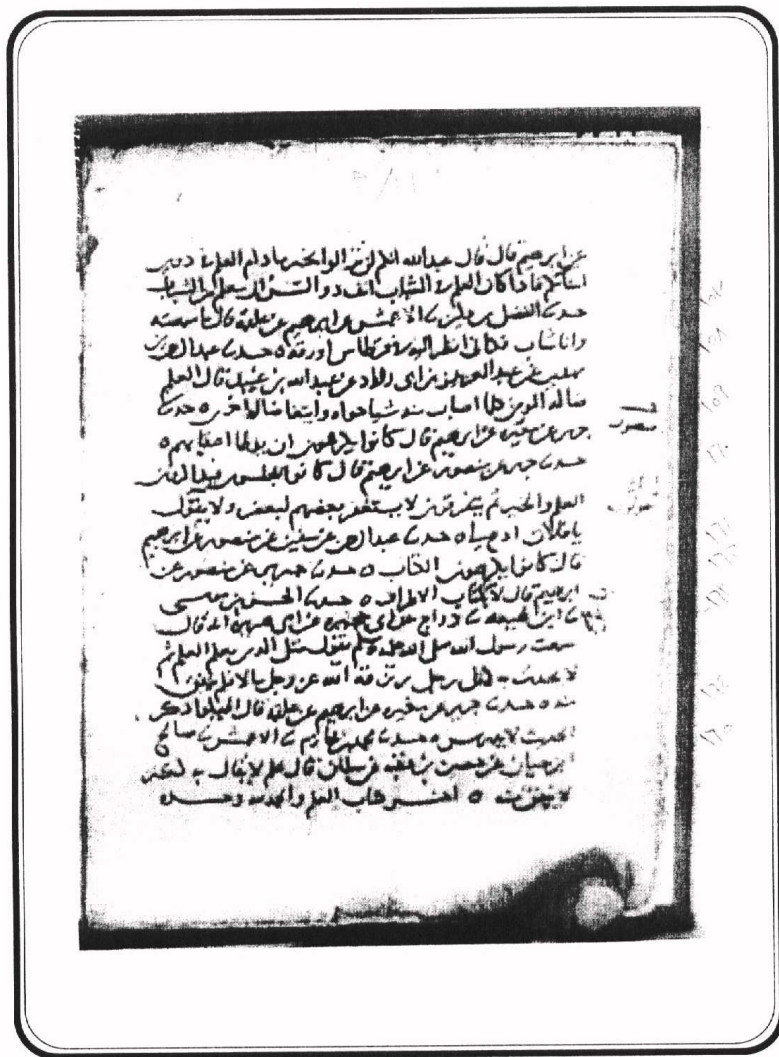 عن ابرهيم قال قال عبدالله انكم لن تزالوا بخير ما دام العلم في ذوي
اسنانكم فاذا كان العلم في الشباب انف ذو السن ان يتعلم من الشباب
حدثنا الفضل بن دكين نا الاعمش عن ابرهيم عن علقمة قال ما سمعته
وانا شاب فكاني انظر اليه في قرطاس او ورقة ٥ حدثنا عبدالعزيز
عن عبدالله بن عبيد قال العلم
ضالة المومن كلما اصاب منه شيا حواه وابتغى ضالة اخرى ٥ حدثنا
جرير عن مغيرة عن ابرهيم قال كانوا يكرهون ان توطا اعقابهم ٥
حدثنا جرير عن منصور عن ابرهيم قال كانوا يجلسون فيتذاكرون
العلم والخير ثم يتفرقون لا يستغفر بعضهم لبعض ولا يقول
يا فلان ادع لنا ٥ حدثنا عبدالرحمن عن سفين عن منصور عن ابرهيم
قال كانوا يكرهون الكتاب ٥ حدثنا جرير عن منصور عن
ابرهيم قال لا بكتاب الاطراف ٥ حدثنا الحسن بن موسى
نا ابن لهيعة نا دراج عن ابن حجيرة عن ابي هريرة انه قال
سمعت رسول الله صلى الله عليه وسلم يقول مثل الذي يعلم العلم ثم
لا يحدث به مثل رجل رزقه الله عز وجل مالا فلم ينفق
منه ٥ حدثنا جرير عن مغيرة عن ابرهيم عن علقمة قال اطيلوا ذكر
الحديث لا يدرس ٥ حدثنا محمد بن خازم نا الاعمش عن صالح
ابن حيان عن حصين بن عقبة عن سلمان قال علم لا يقال به ككنز
لا ينفق منه ٥ اخر كتاب العلم والحمد لله وحده